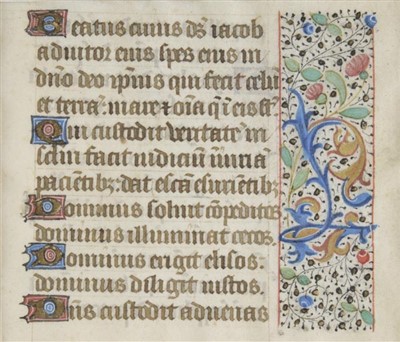 Beatus cuius ds̃ iacob
adiutor eius spes eius in
dño deo ipsius qui fecit celũ
et terrã: mare ⁊ oĩa q̃ i eis sũt
Qui custodit veritatẽ in
sc̃lm facit iudiciũ iniuriã
pacientibꝫ: dat escã esurientibꝫ
Dominus soluit cõpeditos
dominus illuminat cecos.
Dominus erigit elisos:
dominus diligit iustos.
Dñs custodit aduenas